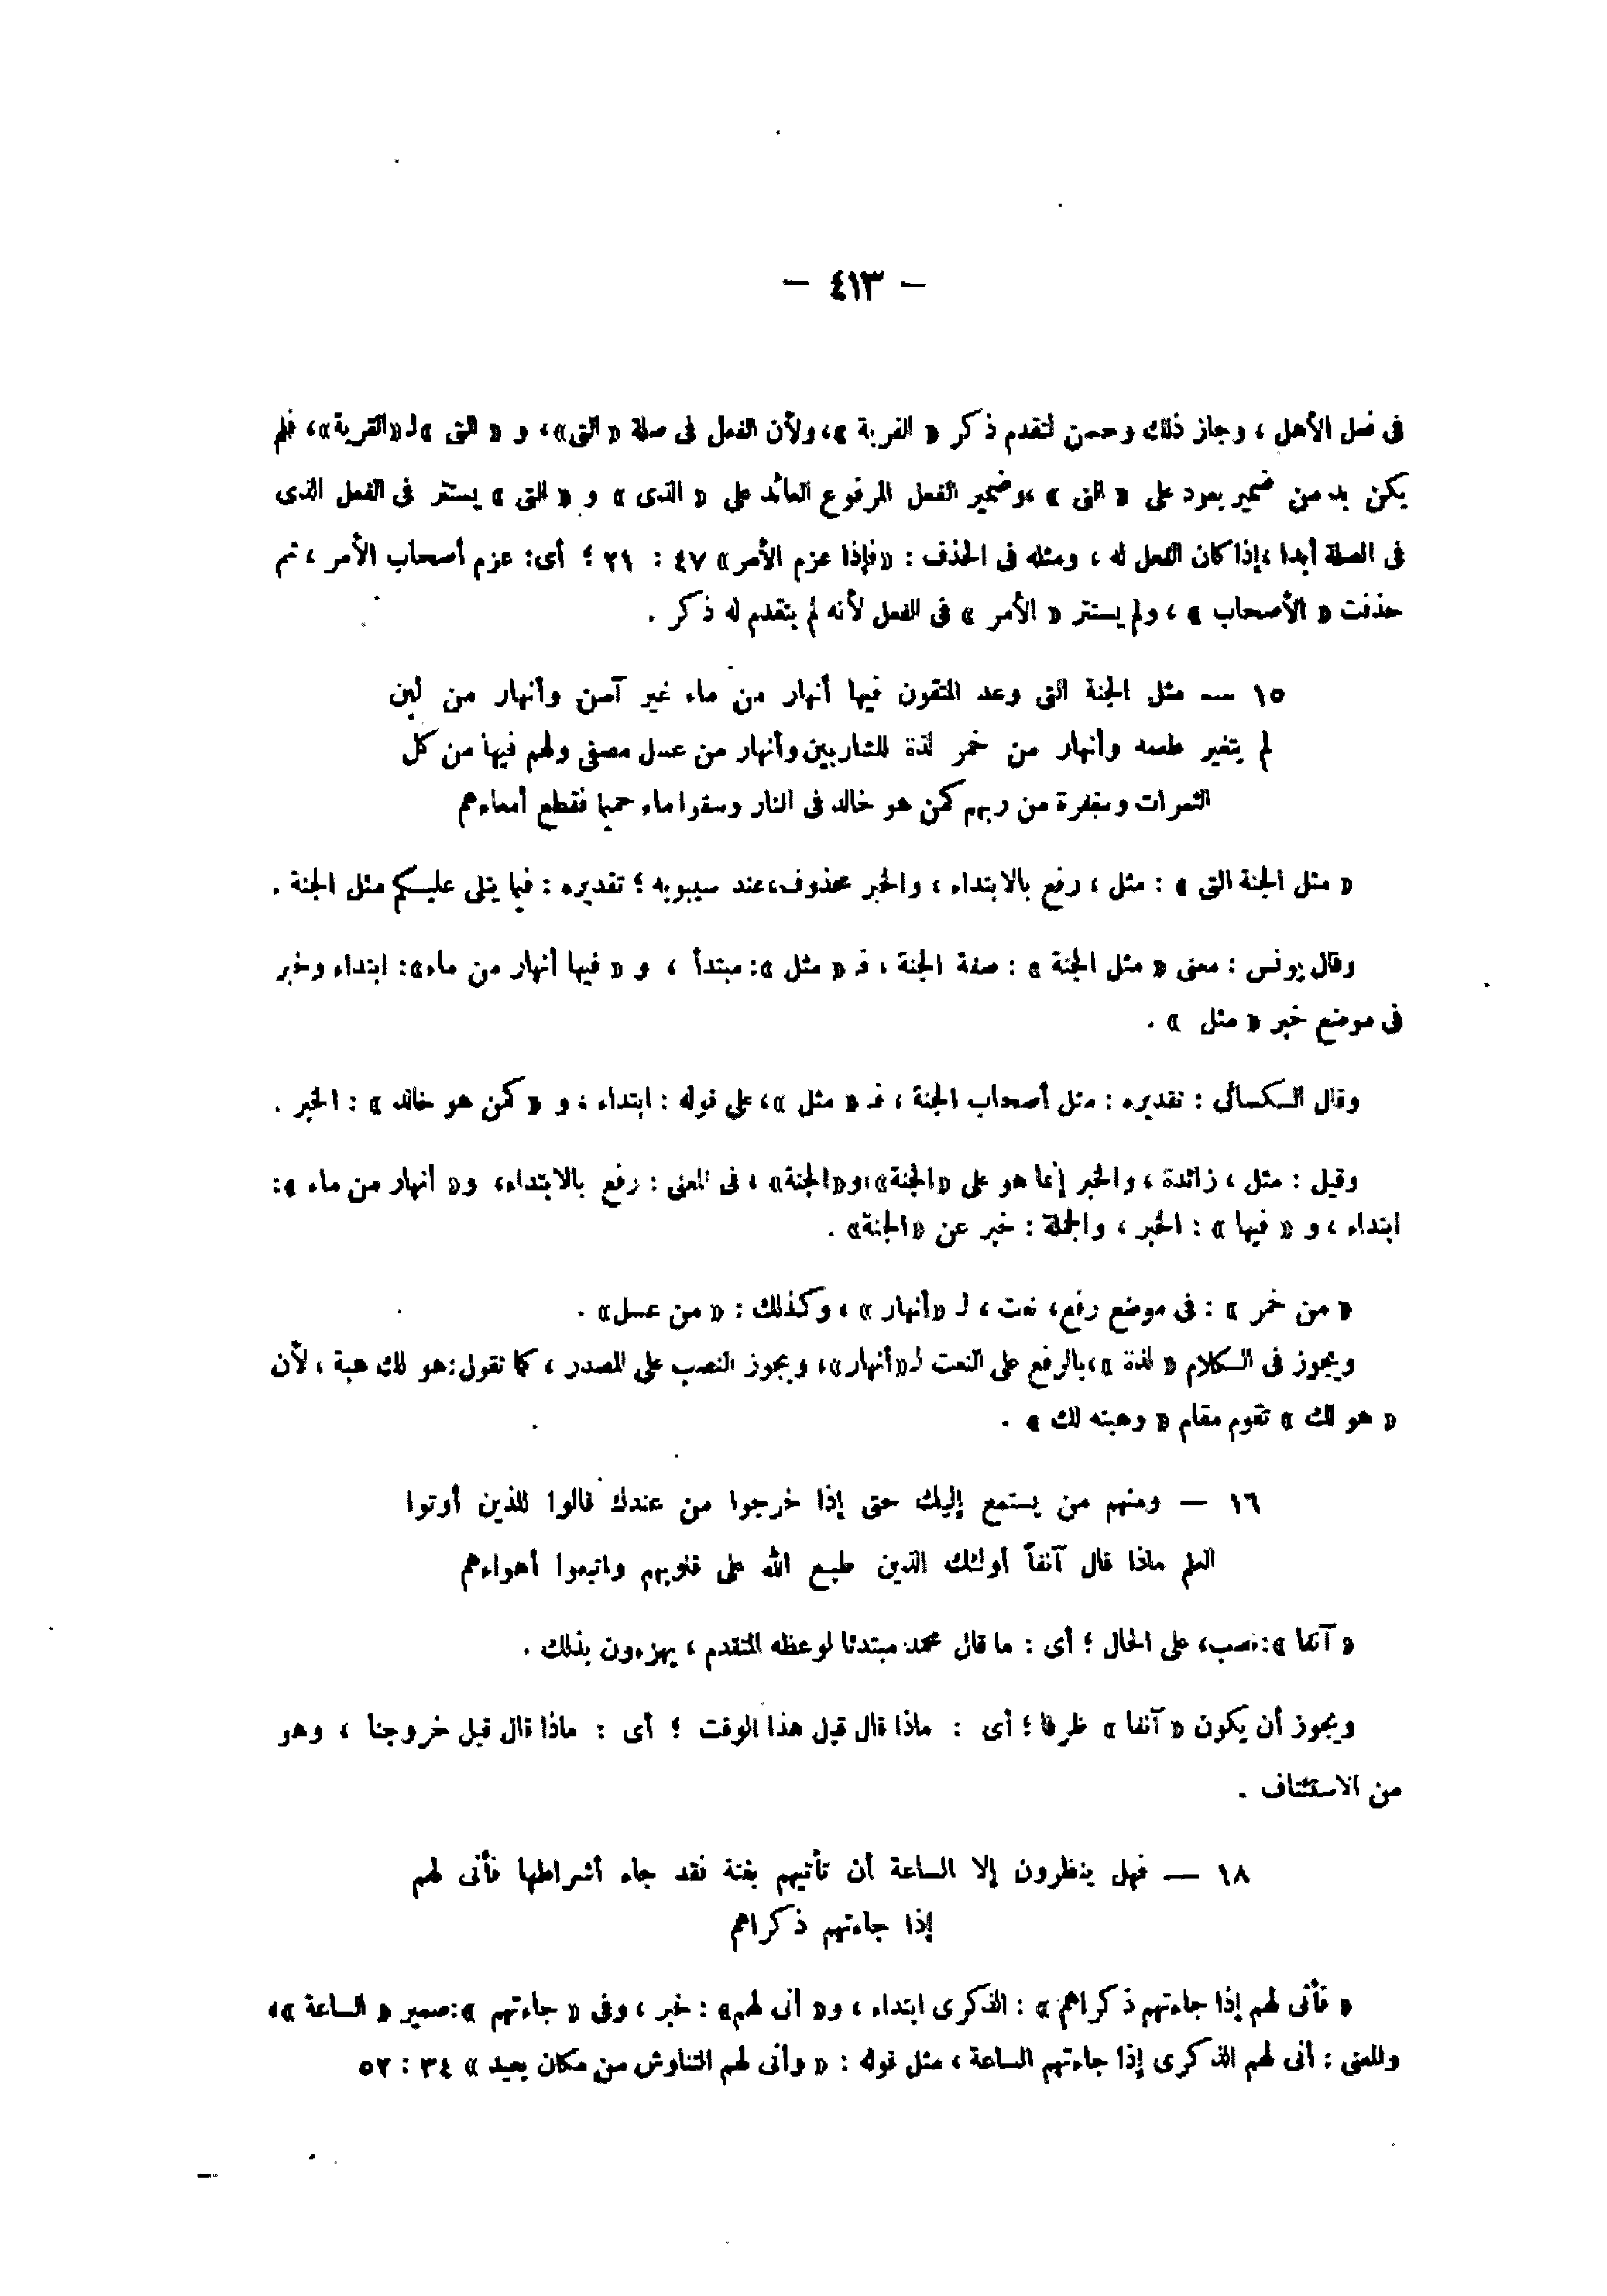 — ٤١٣ —
فى فعل الأهل ، وجاز ذلك وحسن لتقدم ذكر « القرية »، ولأن الفعل فى صلة « التى»، و « التى »لـ«القرية»، فلم
يكن بد من ضمير يعود على « التى »،وضمير الفعل المرفوع العائد على « الذى » و « التى » يستتر فى الفعل الذى
فى الصلة أبدا ،إذا كان الفعل له ، ومثله فى الحذف : «فإذا عزم الأمر» ٤٧ : ٢١ ؛ أى: عزم أصحاب الأمر ، ثم
حذفت « الأصحاب » ، ولم يستتر « الأمر » فى الفعل لأنه لم يتقدم له ذكر .
١٥ — مثل الجنة التى وعد المتقون فيها أنهار من ماء غير آسن وأنهار من لبن
لم يتغير طعمه وأنهار من خمر لذة للشاربين وأنهار من عسل مصفى ولهم فيها من كل
الثمرات ومغفرة من ربهم كمن هو خالد فى النار وسقوا ماء حميما فقطع أمعاءهم
« مثل الجنة التى » : مثل ، رفع بالابتداء ، والخبر محذوف،عند سيبويه ؛ تقديره : فيما يتلى عليكم مثل الجنة .
وقال يونس : معنى « مثل الجنة » : صفة الجنة ، فـ « مثل »: مبتدأ ، و « فيها أنهار من ماء»: ابتداء وخبر
فى موضع خبر « مثل » .
وقال الكسائى : تقديره : مثل أصحاب الجنة ، فـ « مثل »، على قوله : ابتداء ، و « كمن هو خالد » : الخبر .
وقيل : مثل ، زائدة ، والخبر إنما هو على «الجنة»،و«الجنة» ، فى المعنى : رفع بالابتداء، و« أنهار من ماء »:
ابتداء ، و « فيها » : الخبر ، والجملة : خبر عن «الجنة» .
« من خمر » : فى موضع رفع، نعت ، لـ «أنهار » ، وكذلك : « من عسل» .
ويجوز فى الكلام « لذة »،بالرفع على النعت لـ«أنهار»، ويجوز النصب على المصدر ، كما تقول:هو لك هبة ، لأن
« هو لك » تقوم مقام « وهبته لك » .
١٦ — ومنهم من يستمع إليك حتى إذا خرجوا من عندك قالوا للذين أوتوا
العلم ماذا قال آنفاً أولئك الذين طبع الله على قلوبهم واتبعوا أهواءهم
« آنفا »:نصب، على الحال ؛ أى : ما قال محمد مبتدئا لوعظه المتقدم ، يهزءون بذلك .
ويجوز أن يكون « آنفا » ظرفا ؛ أى : ماذا قال قبل هذا الوقت ؛ أى : ماذا قال قبل خروجنا ، وهو
من الاستئناف .
١٨ — فهل ينظرون إلا الساعة أن تأتيهم بغتة فقد جاء أشراطها فأنى لهم
إذا جاءتهم ذكراهم
« فأنى لهم إذا جاءتهم ذكراهم » : الذكرى ابتداء ، و« أنى لهم» : خبر ، وفى « جاءتهم »:ضمير « الساعة »،
والمعنى : أنى لهم الذكرى إذا جاءتهم الساعة ، مثل قوله : « وأنى لهم التناوش من مكان بعيد » ٣٤ : ٥٢